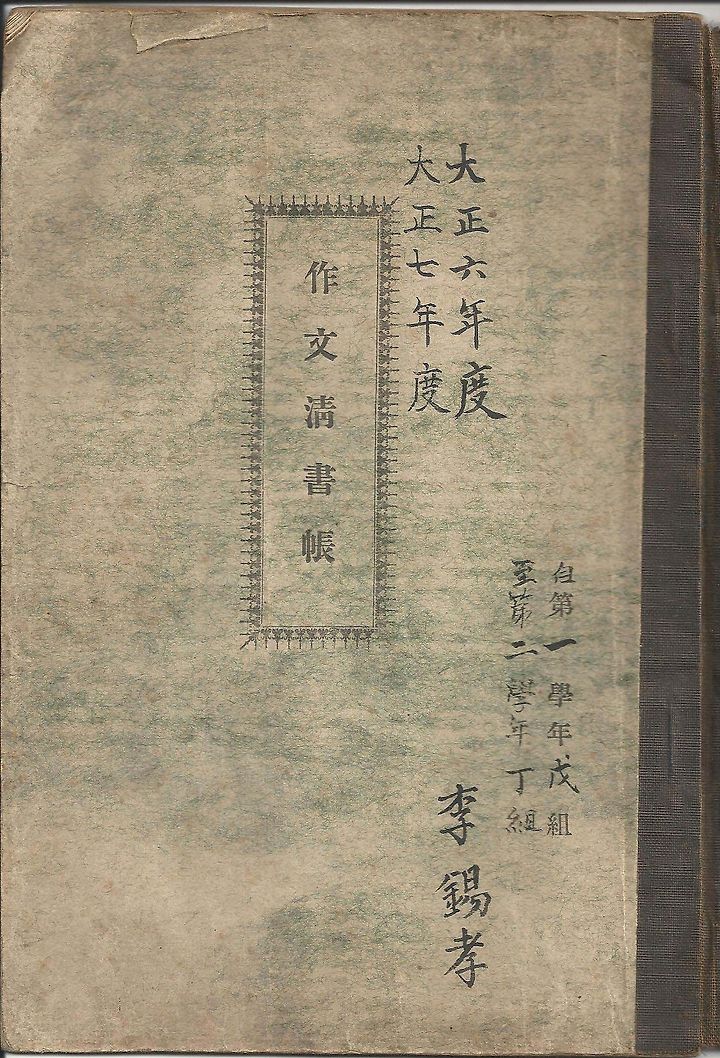 大正六年度
大正七年度
自第一學年戊組
至第二學年丁組
李錫孝
作文淸書帳